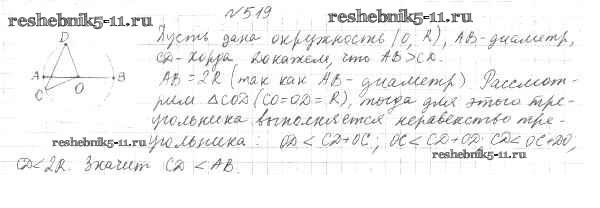 reshebnik5-11.ru
№519
reshebnik5-11.ru
D
Пусть дана окружность (O, R), AB-диаметр,
CD-хорда Докажем, что AB>CD.
A O B
C
AB = 2R (так как AB - диаметр) Рассмот-
reshebnik5-11.ru
рим ΔCOD (CO=OD=R), тогда для этого тре-
угольника выполняется неравенство тре-
reshebnik5-11.ru
угольника: OD < CD+OC; OC < CD+OD; CD < OC+DO,
reshebnik5-11.ru
CD < 2R. Значит CD < AB.